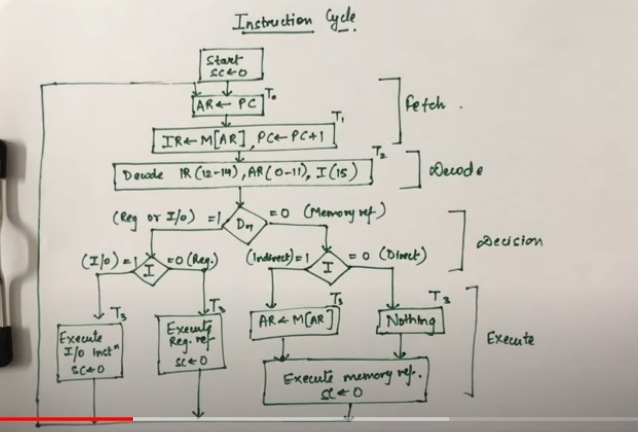 Instruction Cycle.
Start
SC←0
AR← PC
T₀
Fetch.
IR←M[AR], PC←PC+1
T₁
Decode IR(12-14), AR(0-11), I(15)
T₂
Decode
(Reg or I/O) =1
D₇
=0 (Memory ref.)
Decision
(I/O)=1
I
=0 (Reg.)
(Indirect)=1
I
=0 (Direct)
T₃
Execute
I/O Instⁿ
SC←0
T₃
Execute
Reg. ref
SC←0
T₃
AR←M[AR]
T₃
Nothing
Execute
Execute memory ref.
SC←0